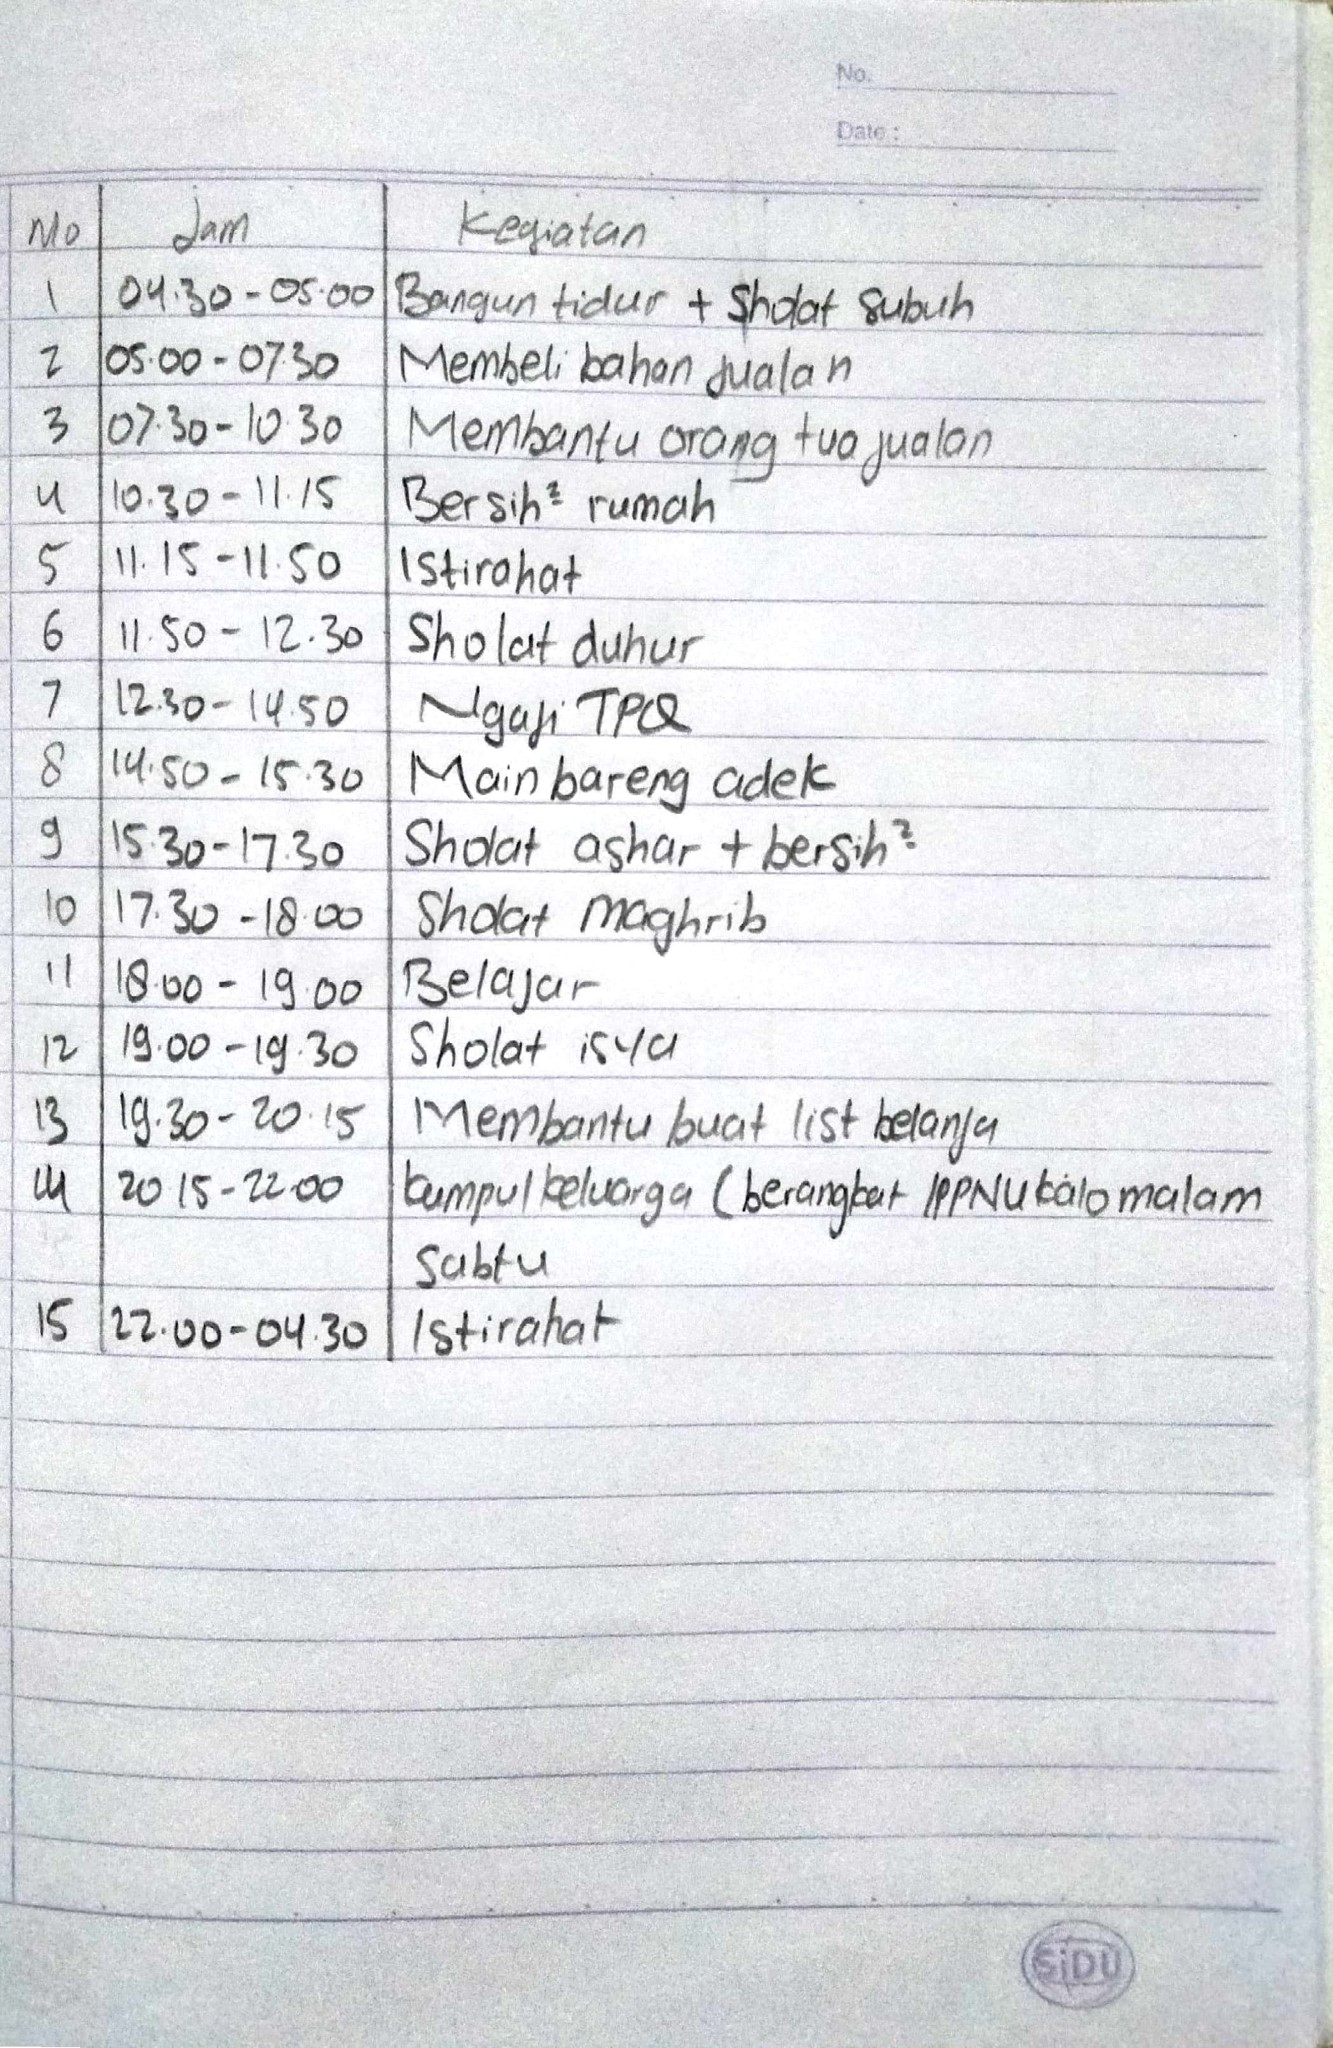 No.
Date :
No Jam Kegiatan
1 04.30 - 05.00 Bangun tidur + Sholat Subuh
2 05.00 - 07.30 Membeli bahan jualan
3 07.30 - 10.30 Membantu orang tua jualan
4 10.30 - 11.15 Bersih² rumah
5 11.15 - 11.50 Istirahat
6 11.50 - 12.30 Sholat duhur
7 12.30 - 14.50 Ngaji TPQ
8 14.50 - 15.30 Main bareng adek
9 15.30 - 17.30 Sholat ashar + bersih²
10 17.30 - 18.00 Sholat Maghrib
11 18.00 - 19.00 Belajar
12 19.00 - 19.30 Sholat isya
13 19.30 - 20.15 Membantu buat list belanja
14 20 15 - 22.00 kumpul keluarga (berangkat IPPNU kalo malam
Sabtu
15 22.00 - 04.30 Istirahat
SiDU